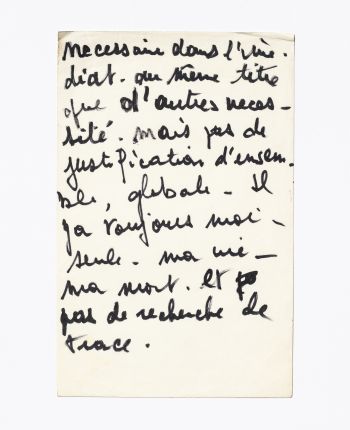 necessaire dans l'imé-
diat. au même titre
que d'autres neces-
sité. mais pas de
justification d'ensem-
ble, globale - Il
y a toujours moi -
seule. ma vie -
ma mort. et
pas de recherche de
trace.